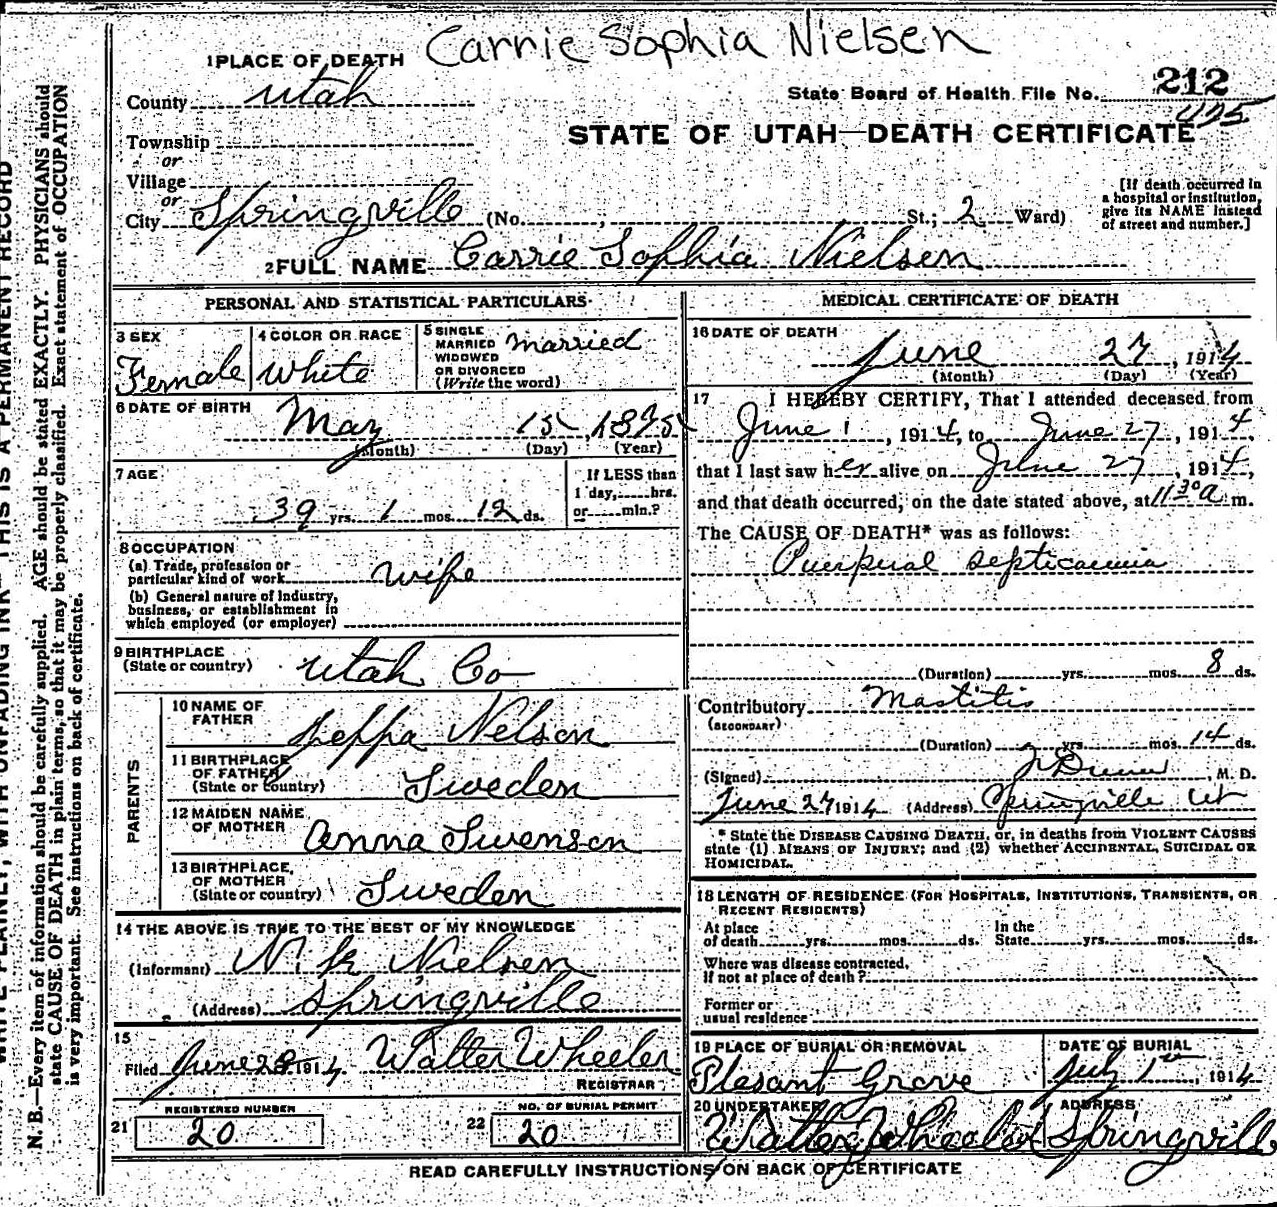 Carrie Sophia Nielsen
1 PLACE OF DEATH
County Utah
State Board of Health File No. 212
495
STATE OF UTAH—DEATH CERTIFICATE
Township
or
Village
or
City Springville (No. , St.; 2 Ward)
[If death occurred in
a hospital or institution,
give its NAME instead
of street and number.]
2 FULL NAME Carrie Sophia Nielsen
PERSONAL AND STATISTICAL PARTICULARS
3 SEX
Female
4 COLOR OR RACE
White
5 SINGLE
MARRIED
WIDOWED
OR DIVORCED
(Write the word)
Married
6 DATE OF BIRTH
May 15, 1875
(Month) (Day) (Year)
7 AGE
39 yrs. 1 mos. 12 ds.
If LESS than
1 day, hrs.
or min.?
8 OCCUPATION
(a) Trade, profession or
particular kind of work wife
(b) General nature of Industry,
business, or establishment in
which employed (or employer)
9 BIRTHPLACE
(State or country) Utah Co
PARENTS
10 NAME OF
FATHER Jeppa Nelson
11 BIRTHPLACE
OF FATHER
(State or country) Sweden
12 MAIDEN NAME
OF MOTHER Anna Swenson
13 BIRTHPLACE
OF MOTHER
(State or country) Sweden
14 THE ABOVE IS TRUE TO THE BEST OF MY KNOWLEDGE
(Informant) N. K Nielsen
(Address) Springville
15
Filed June 28 1914 Walter Wheeler
REGISTRAR
21 REGISTERED NUMBER
20
22 NO. OF BURIAL PERMIT
20
MEDICAL CERTIFICATE OF DEATH
16 DATE OF DEATH
June 27, 1914
(Month) (Day) (Year)
17 I HEREBY CERTIFY, That I attended deceased from
June 1, 1914, to June 27, 1914,
that I last saw her alive on June 27, 1914,
and that death occurred, on the date stated above, at 11 30 a m.
The CAUSE OF DEATH* was as follows:
Puerperal Septicaemia
(Duration) yrs. mos. 8 ds.
Contributory Mastitis
(SECONDARY)
(Duration) yrs. mos. 14 ds.
(Signed) , M. D.
June 27 1914 (Address) Springville Ut
* State the DISEASE CAUSING DEATH, or, in deaths from VIOLENT CAUSES
state (1) MEANS OF INJURY; and (2) whether ACCIDENTAL, SUICIDAL OR
HOMICIDAL.
18 LENGTH OF RESIDENCE (FOR HOSPITALS, INSTITUTIONS, TRANSIENTS, OR
RECENT RESIDENTS)
At place
of death yrs. mos. ds.
In the
State yrs. mos. ds.
Where was disease contracted,
If not at place of death?
Former or
usual residence
19 PLACE OF BURIAL OR REMOVAL
Plesant Grove
DATE OF BURIAL
July 1st, 1914
20 UNDERTAKER
Walter Wheeler
ADDRESS
Springville
READ CAREFULLY INSTRUCTIONS ON BACK OF CERTIFICATE
WRITE PLAINLY, WITH UNFADING INK—THIS IS A PERMANENT RECORD
N. B.—Every item of information should be carefully supplied. AGE should be stated EXACTLY. PHYSICIANS should
state CAUSE OF DEATH in plain terms, so that it may be properly classified. Exact statement of OCCUPATION
is very important. See instructions on back of certificate.